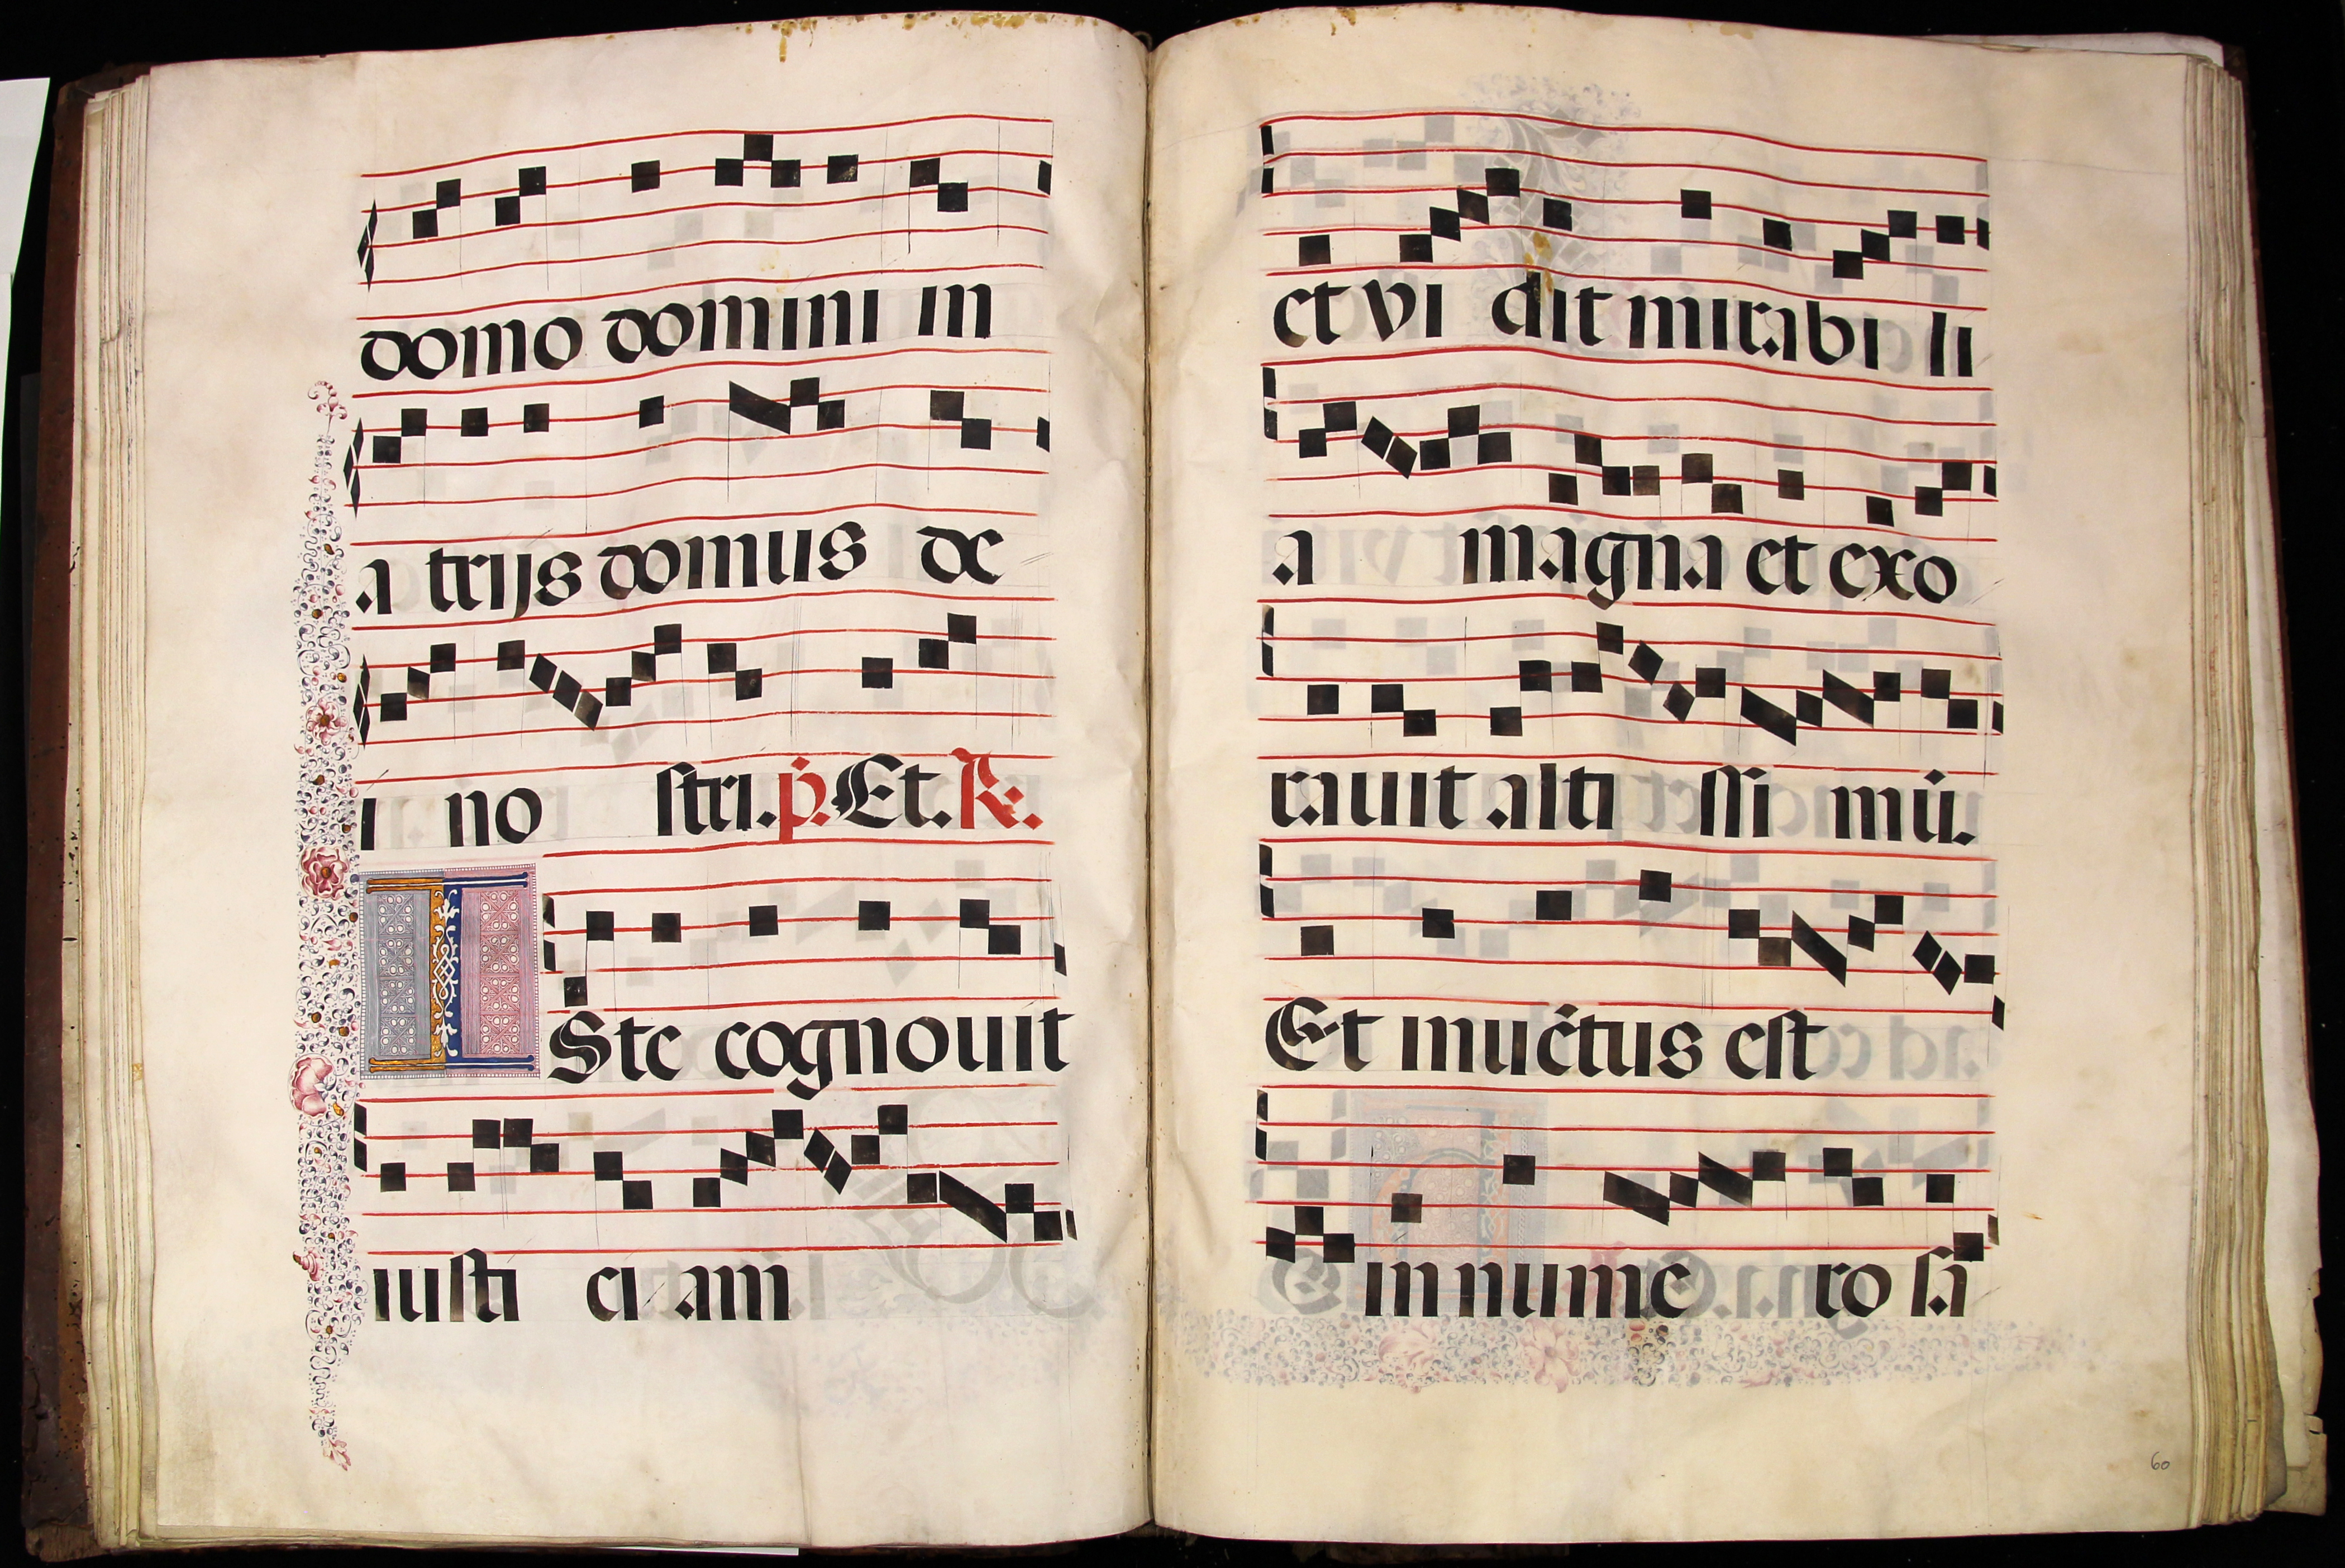 domo domini in
a trijs domus de
i no stri. p̃. Et. R.
ISte cognouit
iusti ci am
et vi dit mirabi li
a magna et exo
rauit alti ssi mū.
Et inuētus est
in nume ro sā
60